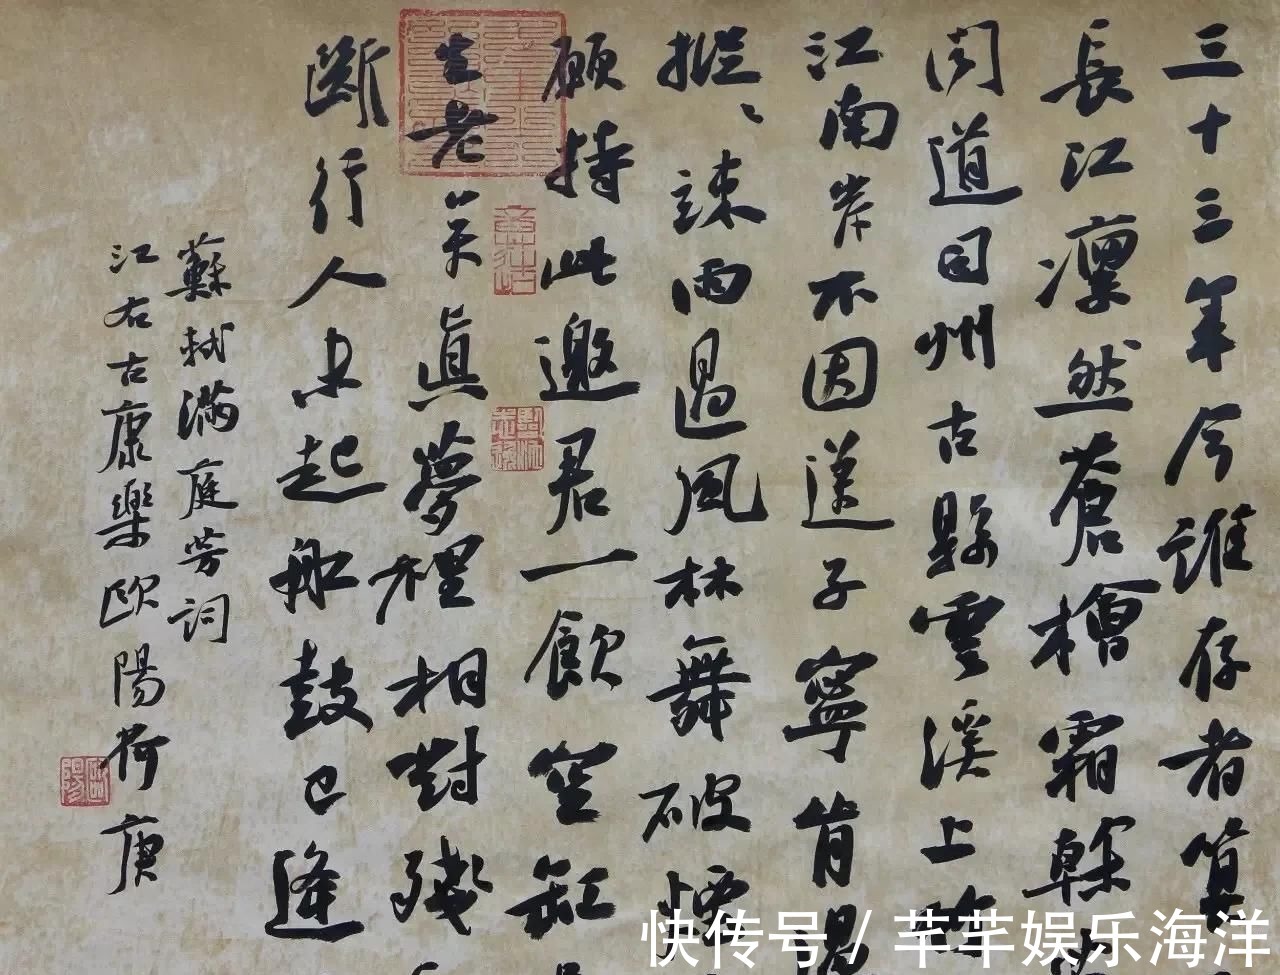 三十三年今誰存者算
長江凛然蒼檜霜榦
聞道司州古縣雲溪上竹
江南岸不因送子寧肯過
摐〻疎雨過風林舞破煙
願持此邀君一飲空缸
生老矣真夢裡相對殘
斷行人未起船鼓已逢
蘇軾滿庭芳詞
江右古康樂歐陽荷庚
歐陽
快传号/芊芊娱乐海洋